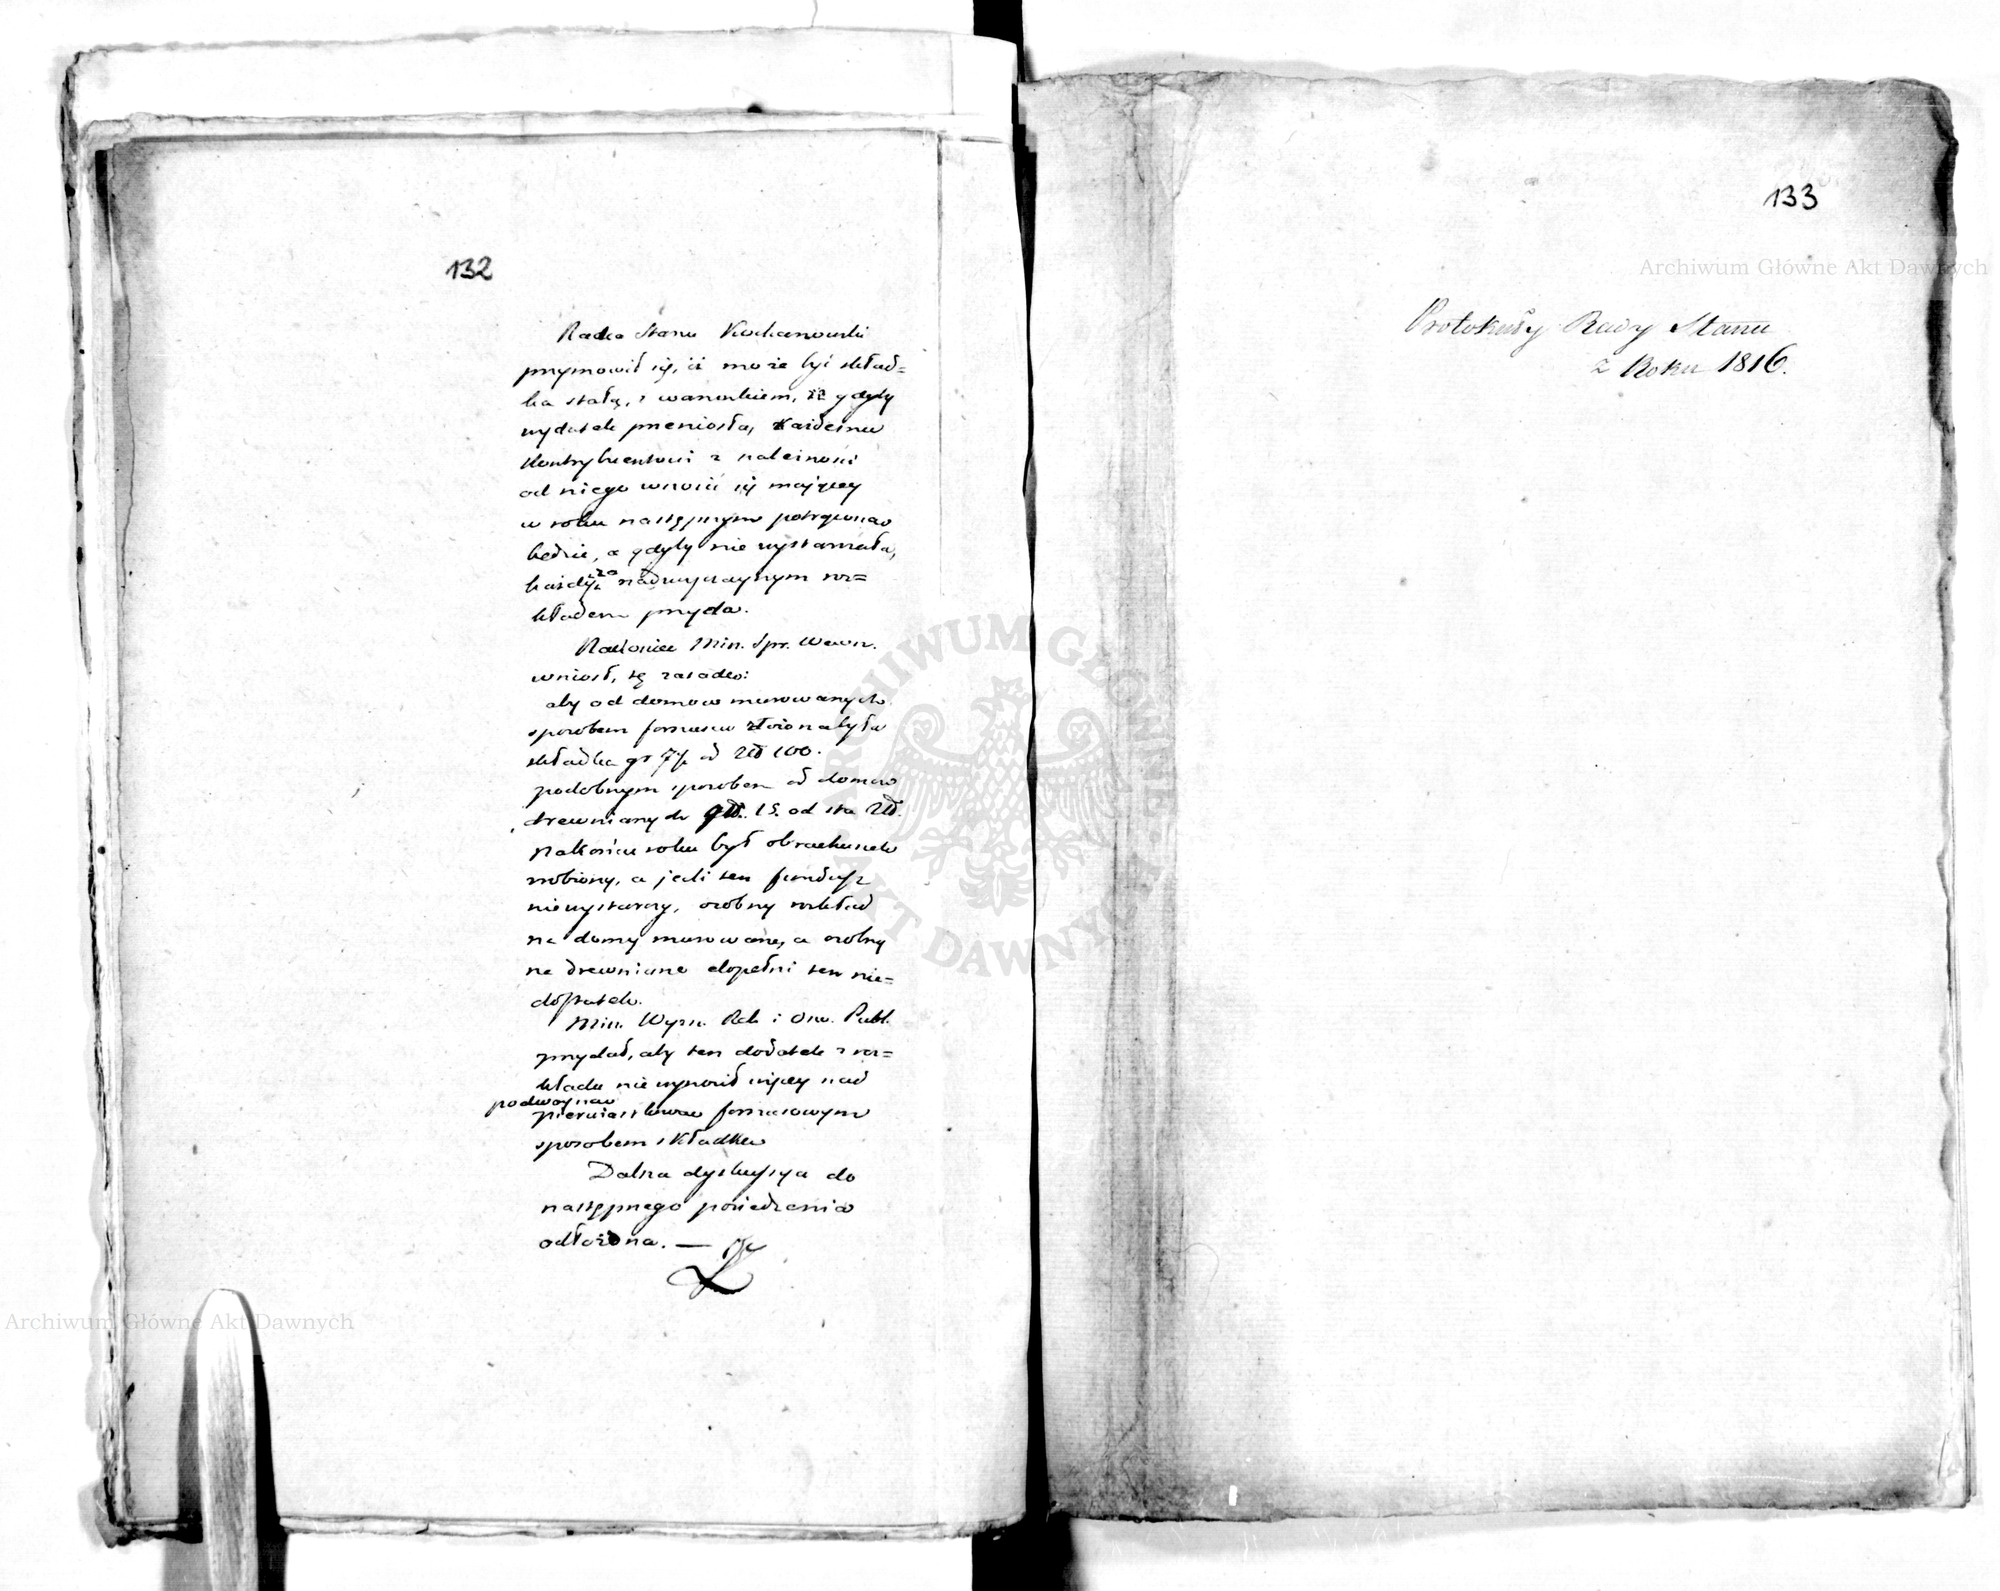 132
Radca Stanu Kochanowski
przymowił się, iż może być skład=
ka stałą, z warunkiem, że gdyby
wydatek przeniosła, każdemu
Kontrybuentowi z należności
od niego wnosić się mającey
w roku następnym potrącona
będzie, a gdyby nie wystarczała,
każdy za nadzwyczaynym roz=
kładem przyda.
Radca Min. Spr. Wewn.
wniosł, tę zasadę:
aby od domow murowanych
sposobem forszusu złożona była
składka gr 7½ od Złł 100.
podobnym sposobem od domow
drewnianych 15. od sta Złł.
Na końcu roku był obrachunek
zrobiony, a jeśli ten fundusz
niewystarczy, osobny rozkład
na domy murowane, a osobny
na drewniane dopełni ten nie=
dostatek.
Min. Wyzn. Rel. i Ow. Publ.
przydał, aby ten dodatek z roz=
kładu nie wynosił więcey nad
podwoyną
pierwiastkową forszusowym
sposobem składkę
Dalsza dyskussya do
następnego posiedzenia
odłożona. —
133
Protokuły Rady Stanu
z Roku 1816.
Archiwum Główne Akt Dawnych
ARCHIWUM GŁÓWNE AKT DAWNYCH
Archiwum Główne Akt Dawnych